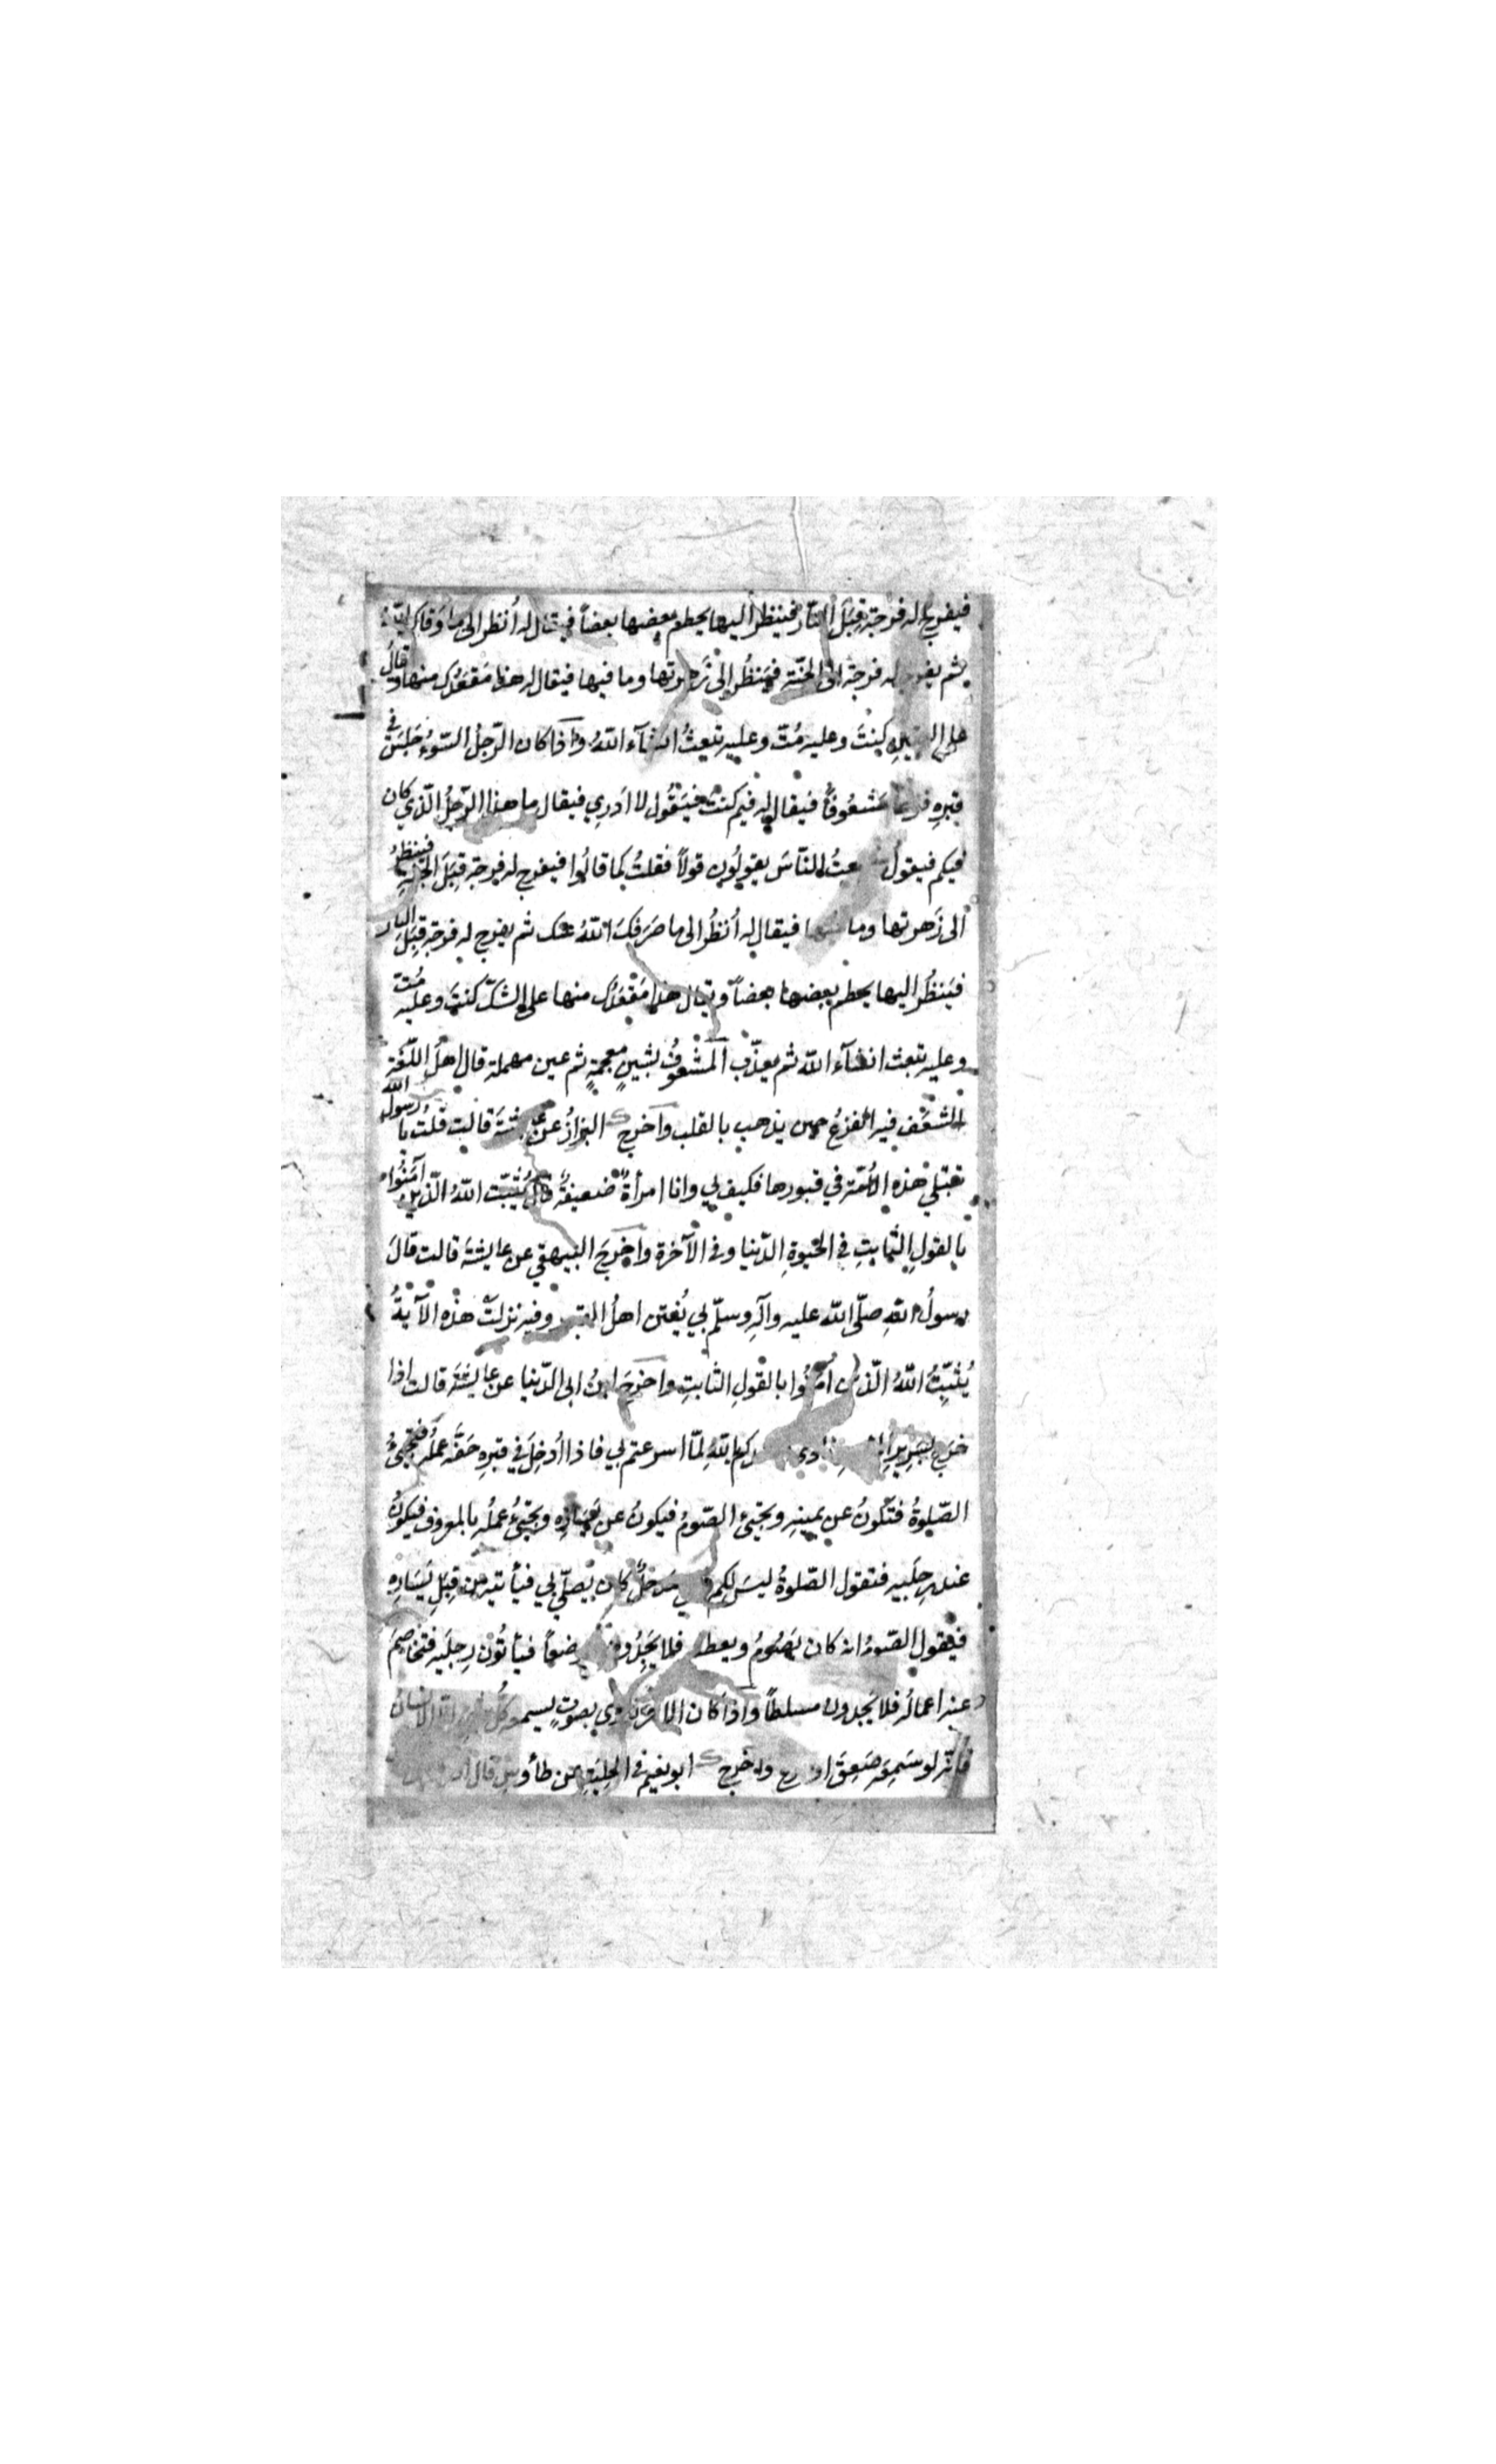 فيفرج له فرجة قِبَلَ النّار فينظر اليها يحطم بعضها بعضاً فيقال له أنظر الى ما وقاك اللّٰهُ
ثم يفرج له فرجة الى الجنّة فيَنظُر الى زَهرتها وما فيها فيقال له هذا مَقعَدُك منها وقال
على اليقين كنتَ وعليه مُتّ وعليه تبعثُ انشآء اللّٰهُ واذا كان الرّجلُ السّوءُ جَلَسَ في
قبرِه فزِعاً مَشعُوفاً فيقال له فيم كنتَ فيَقُول لا اَدرِي فيقال ما هذا الرّجلُ الّذي كان
فيكم فيقول سمعتُ النّاسَ يقولُون قولاً فقلتُ كما قالُوا فيفرج له فرجة قِبَلَ الجنّةِ فينظرُ
الى زَهرتها وما فيها فيقال له اُنظُر الى ما صَرَفكَ اللّٰهُ عنك ثم يفرج له فرجة قِبَلَ النار
فيَنظُر اليها يحطم بعضها بعضاً ويقال هذا مَقعَدُك منها على الشكّ كنتَ وعليه مُتّ
وعليه تبعث انشآء اللّٰه ثم يعذّب المَشعُوفُ بشينٍ معجمةٍ ثم عين مهملة قال اهلُ اللّغة
الشعَف فيه الفزعُ حين يذهب بالقلب واخرج البزازُ عن عايشة قالت قلت يا رسول اللّٰه
تبتلي هذه الأُمّة في قبورها فكيف لي وانا امرأةٌ ضعيفةٌ قال يُثبّت اللّٰهُ الّذين آمنُوا
بالقولِ الثّابتِ في الحَيوةِ الدّنيا وفي الآخرة واخرجَ البيهقي عن عايشةَ قالت قالَ
رسولُ اللّٰهِ صلّى اللّٰه عليه وآلِه وسلّم بي يُفتن اهلُ القبور وفيه نزلت هذه الآيةُ
يُثبِّتُ اللّٰهُ الّذين آمنُوا بالقولِ الثابتِ واخرجَ ابنُ ابى الدّنيا عن عايشةَ قالت اذا
خرج بسَرِيرِ المؤمنِ نادى انشدكم باللّٰهِ لمّا اسرعتم بي فاذا اُدخِلَ في قبرِه حَفّه عملُه فتجيئُ
الصّلوةُ فتَكونُ عن يمينِه ويجيئ الصّومُ فيكونُ عن يَسَارِه ويجيئُ عملُه بالمعروف فيكونُ
عند رِجلَيه فتقول الصّلوةُ ليسَ لكم قِبَلي مَدخلٌ كان يُصلّي بي فيأتيه من قِبَلِ يَسَارِه
فيقول الصّومُ انه كان يَصُومُ ويعطش فلا يَجِدُون موضعاً فيأتُون رِجلَيه فتخاصِمَ
عنه اعمالُه فلا يَجدون مسلطاً واذا كان الاخرُ نادى بصَوتٍ يسمعه كلُّ شيء الا الانسان
فانّه لو سَمِعَه صَعِقَ او جزع واخرج ابونعيم في الحِليَةِ عن طاوس قال